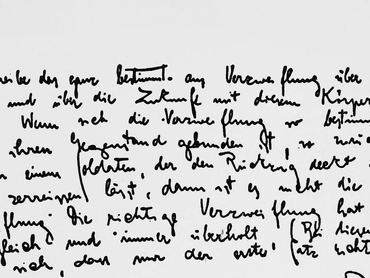 schreibe das ganz bestimmt aus Verzweiflung über
und über die Zukunft mit diesem Körper
Wenn sich die Verzweiflung so bestimmt
ihren Gegenstand gebunden ist, so
einem Soldaten, der den Rückzug deckt
zerreissen lässt, dann ist es nicht die
Die richtige Verzweiflung hat
gleich und immer überholt, (Bei diesem
sich, dass nur der erste Satz richtig